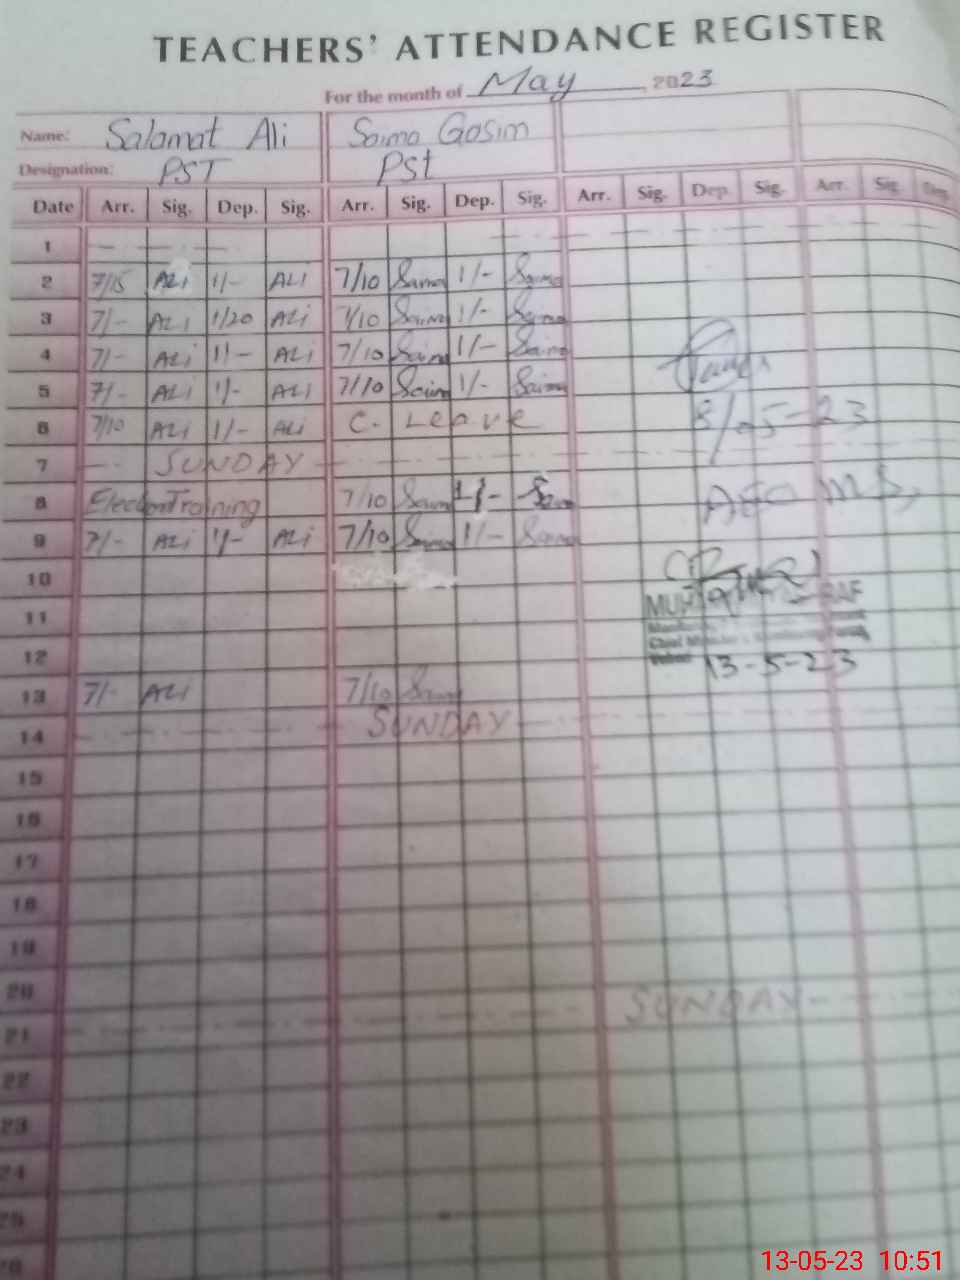 TEACHERS' ATTENDANCE REGISTER
For the month of May, 2023
Name: Salamat Ali Saima Gosim
Designation: PST PSt
Date Arr. Sig. Dep. Sig. Arr. Sig. Dep. Sig. Arr. Sig. Dep. Sig. Arr. Sig. Dep.
1
2 7/15 ALi 1/- ALi 7/10 Saima 1/- Saima
3 7/- ALi 1/20 ALi 7/10 Saima 1/- Saima
4 7/- ALi 1/- ALi 7/10 Saima 1/- Saima
5 7/- ALi 1/- ALi 7/10 Saima 1/- Saima
6 7/10 ALi 1/- ALi C. Leave 8/05-23
7 SUNDAY
8 Election Training 7/10 Saima 1/- Saima AEO
9 7/- ALi 1/- ALi 7/10 Saima 1/- Saima
10
11
12 13-5-23
13 7/- ALi 7/10 Saima
14 SUNDAY
15
16
17
18
19
20 SUNDAY
21
22
23
24
25
26
13-05-23 10:51